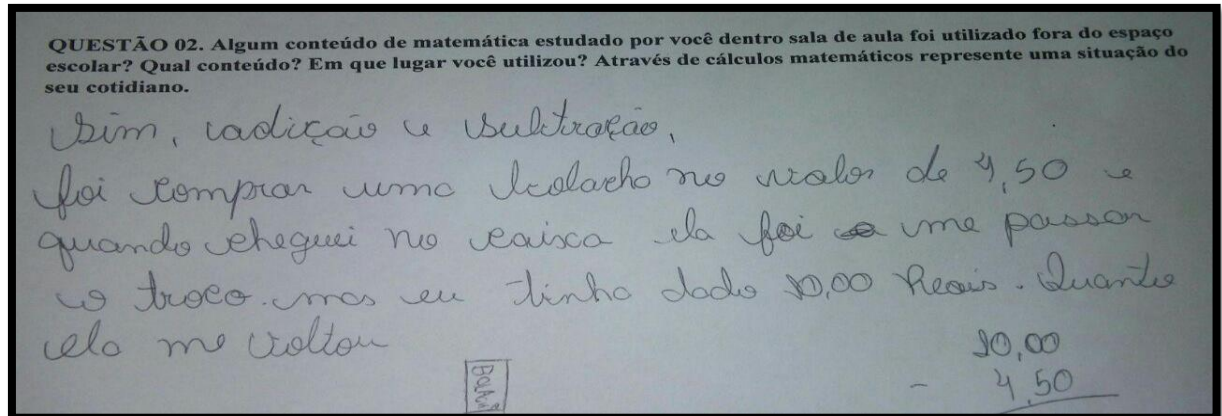 QUESTÃO 02. Algum conteúdo de matemática estudado por você dentro sala de aula foi utilizado fora do espaço
escolar? Qual conteúdo? Em que lugar você utilizou? Através de cálculos matemáticos represente uma situação do
seu cotidiano.
Sim, adição e Subtração,
foi comprar uma bolacho no valor de 4,50 e
quando cheguei no caixa ela foi me passar
o troco. mas eu tinho dado 10,00 Reais. Quanto
ela me voltou
10,00
- 4,50